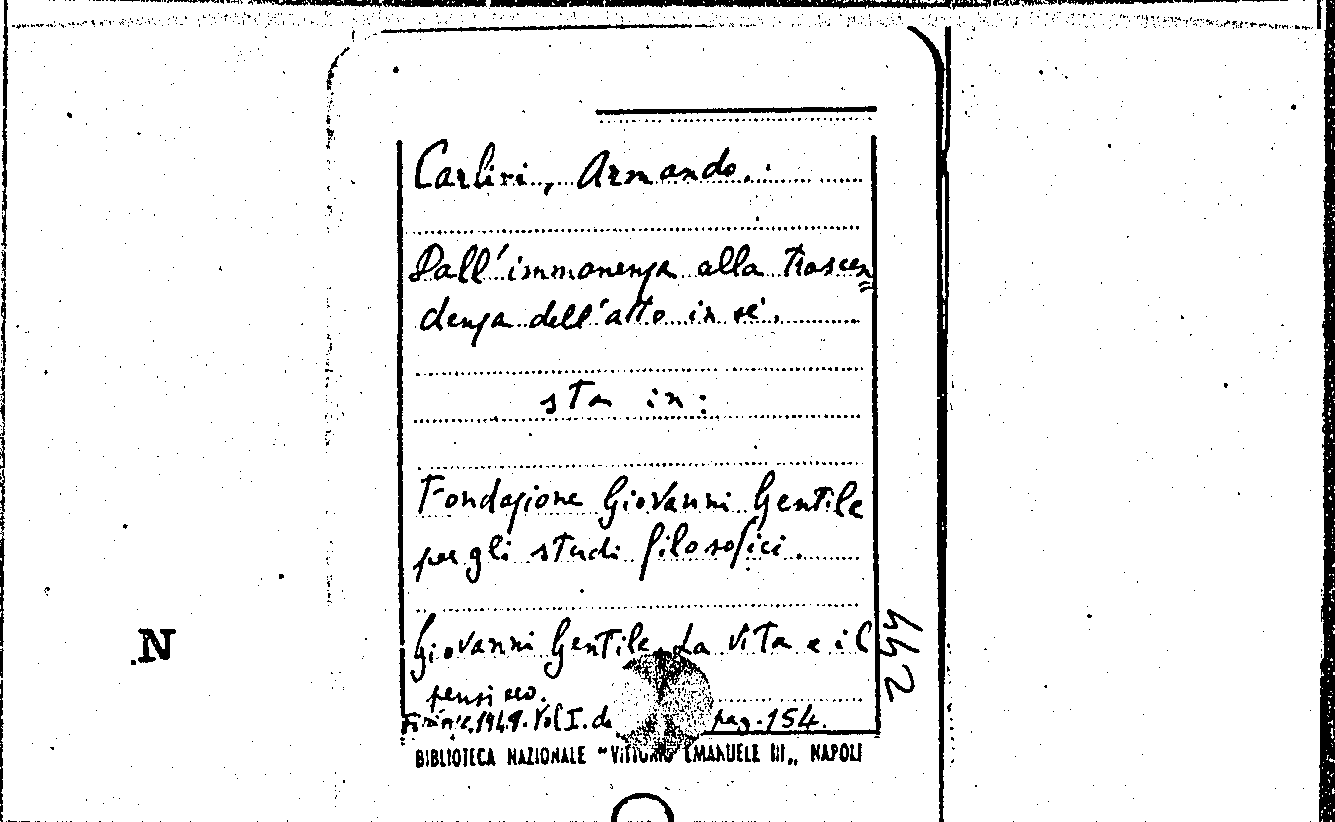 Carlini, Armando.
Dall'immanenza alla trascen
denza dell'atto in sé.
sta in:
Fondazione Giovanni Gentile
per gli studi filosofici.
Giovanni Gentile. La vita e il
pensiero.
Firenze, 1949. Vol I. da pag. 154.
244
.N
BIBLIOTECA NAZIONALE "VITTORIO EMANUELE III„ NAPOLI